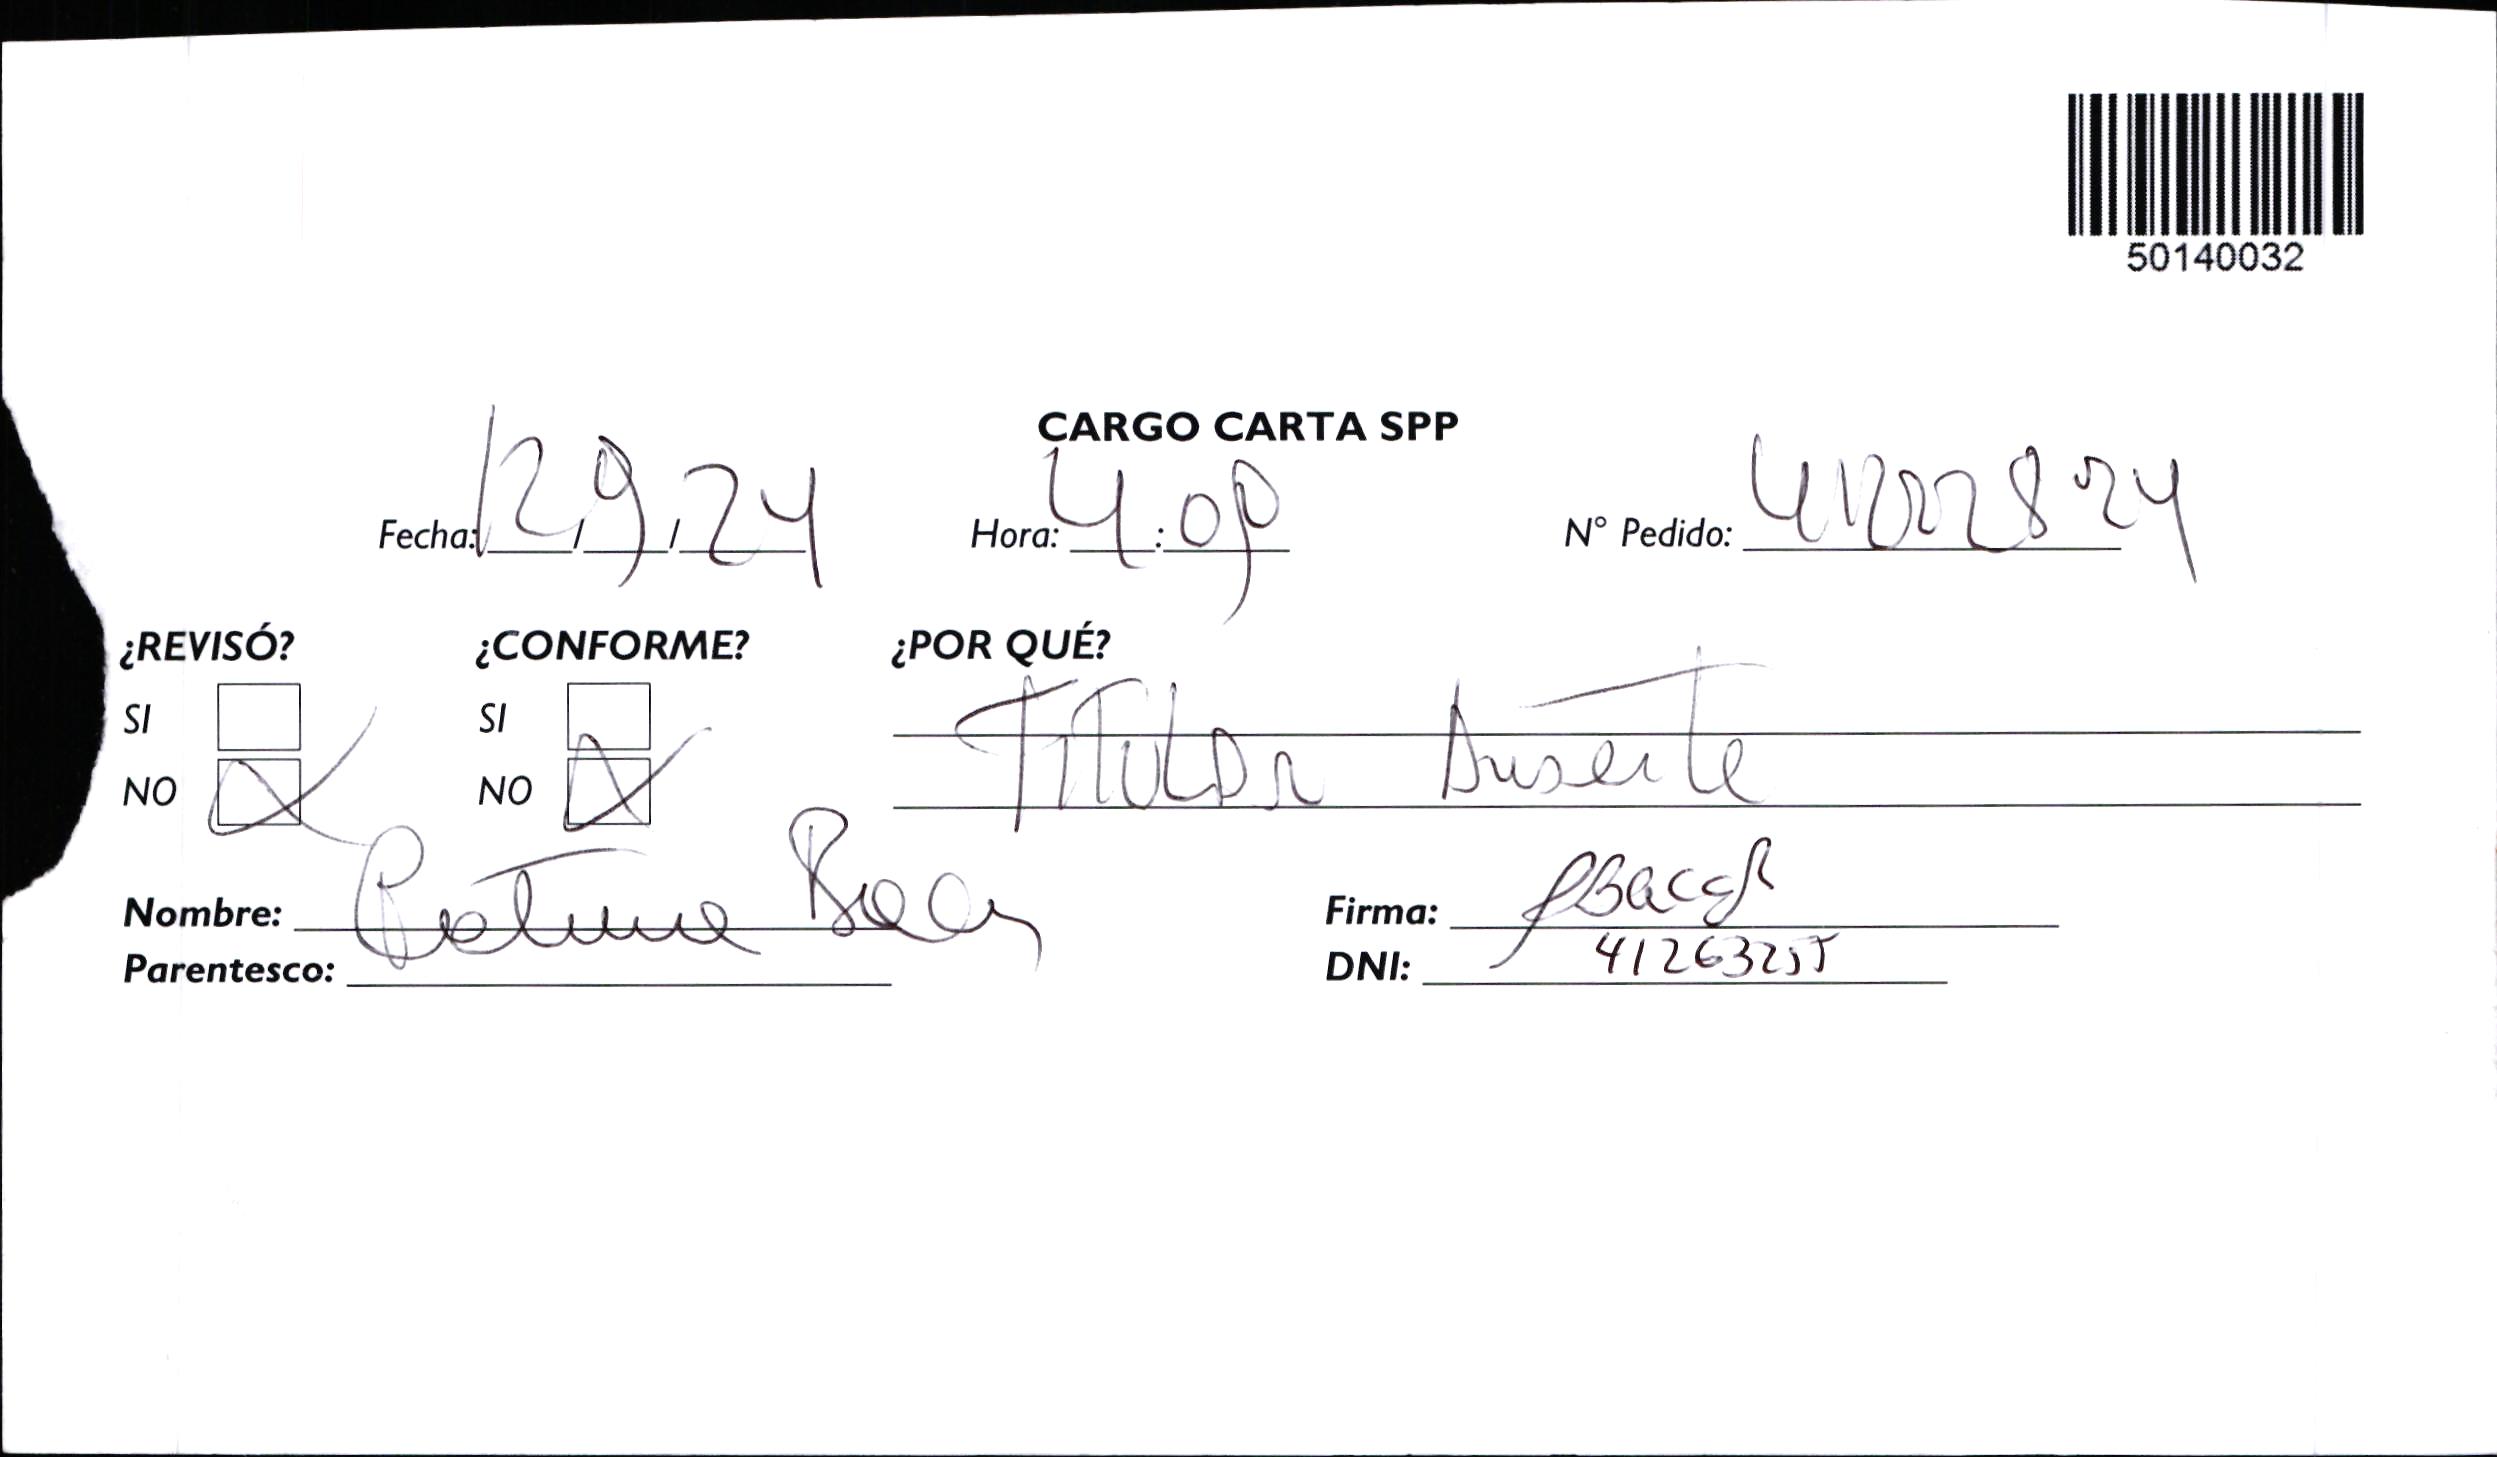 50140032
CARGO CARTA SPP
Fecha: 12/9/24 Hora: 4:00 N° Pedido:
¿REVISÓ? ¿CONFORME? ¿POR QUÉ?
SI SI Titular Ausente
NO NO
Nombre: Firma:
Parentesco: DNI: 41263255